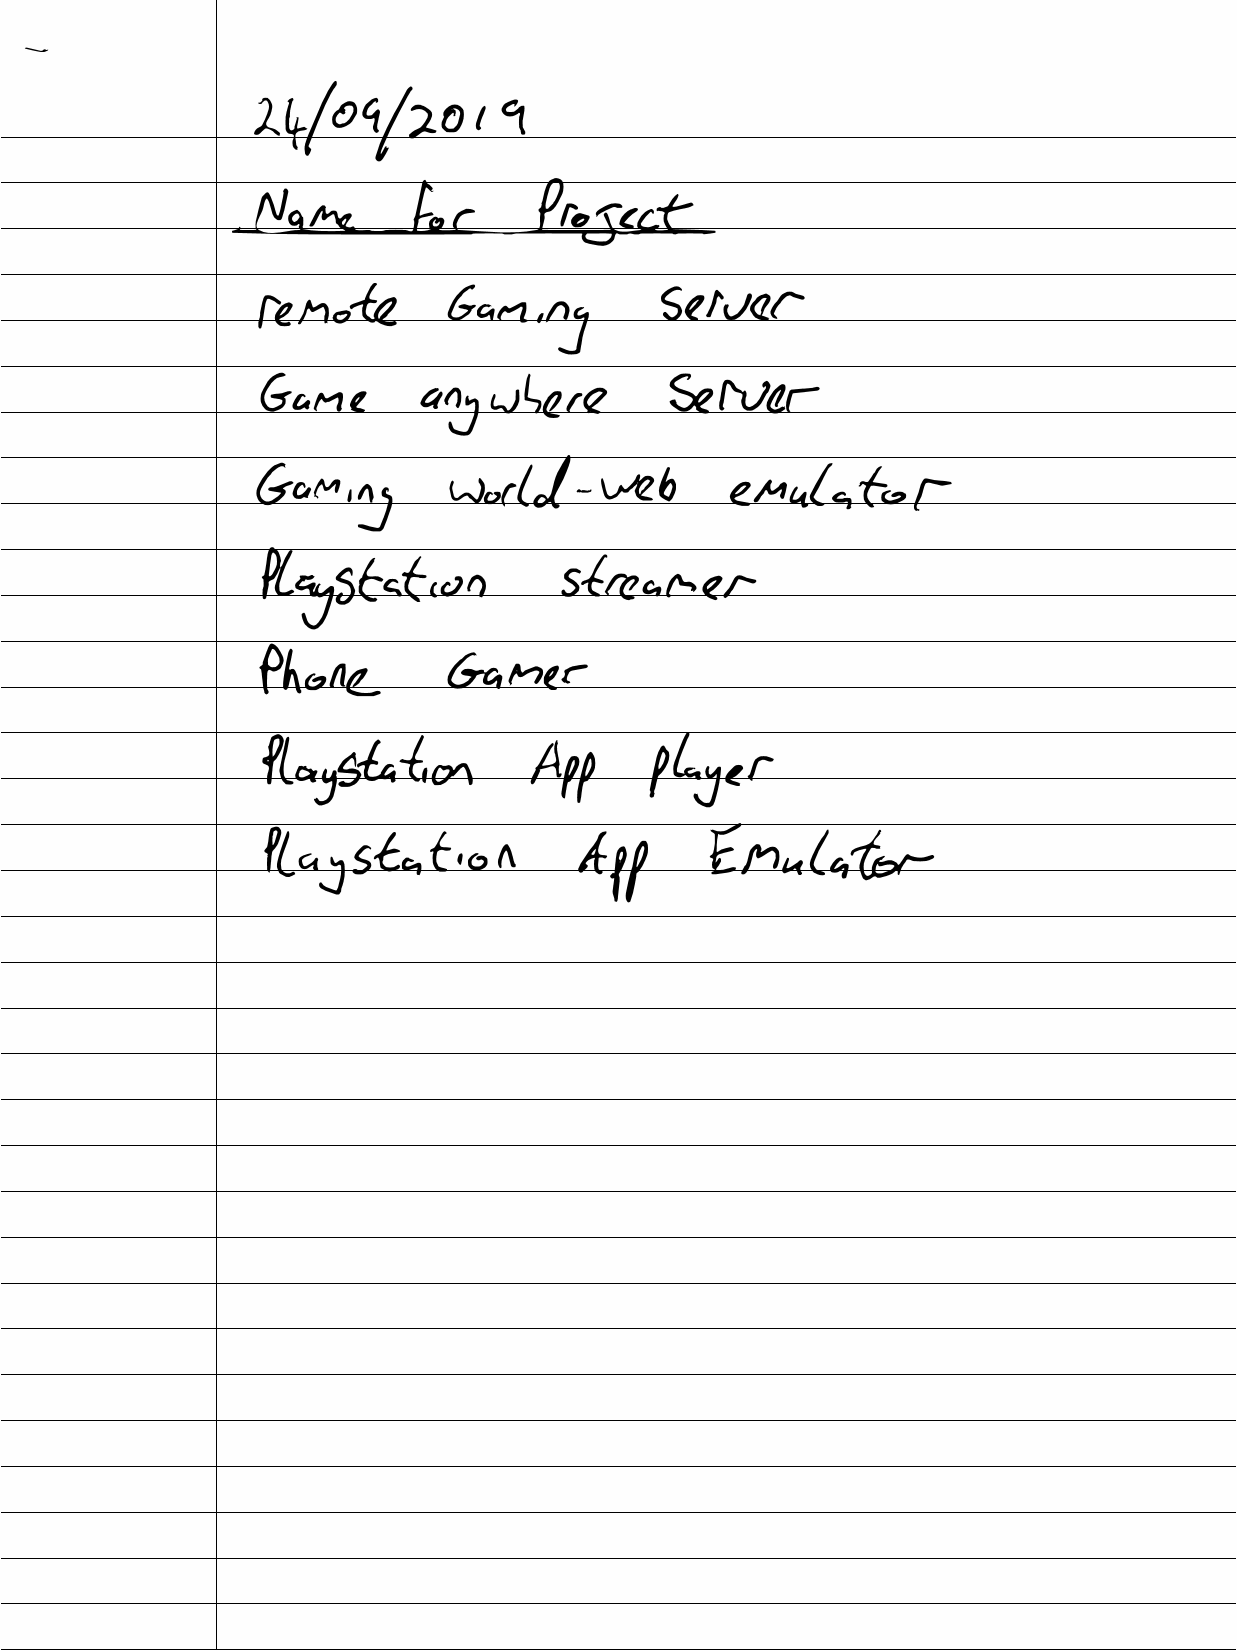 24/09/2019
Name For Project
remote Gaming Server
Game anywhere Server
Gaming world-web emulator
Playstation streamer
Phone Gamer
Playstation App player
Playstation App Emulator